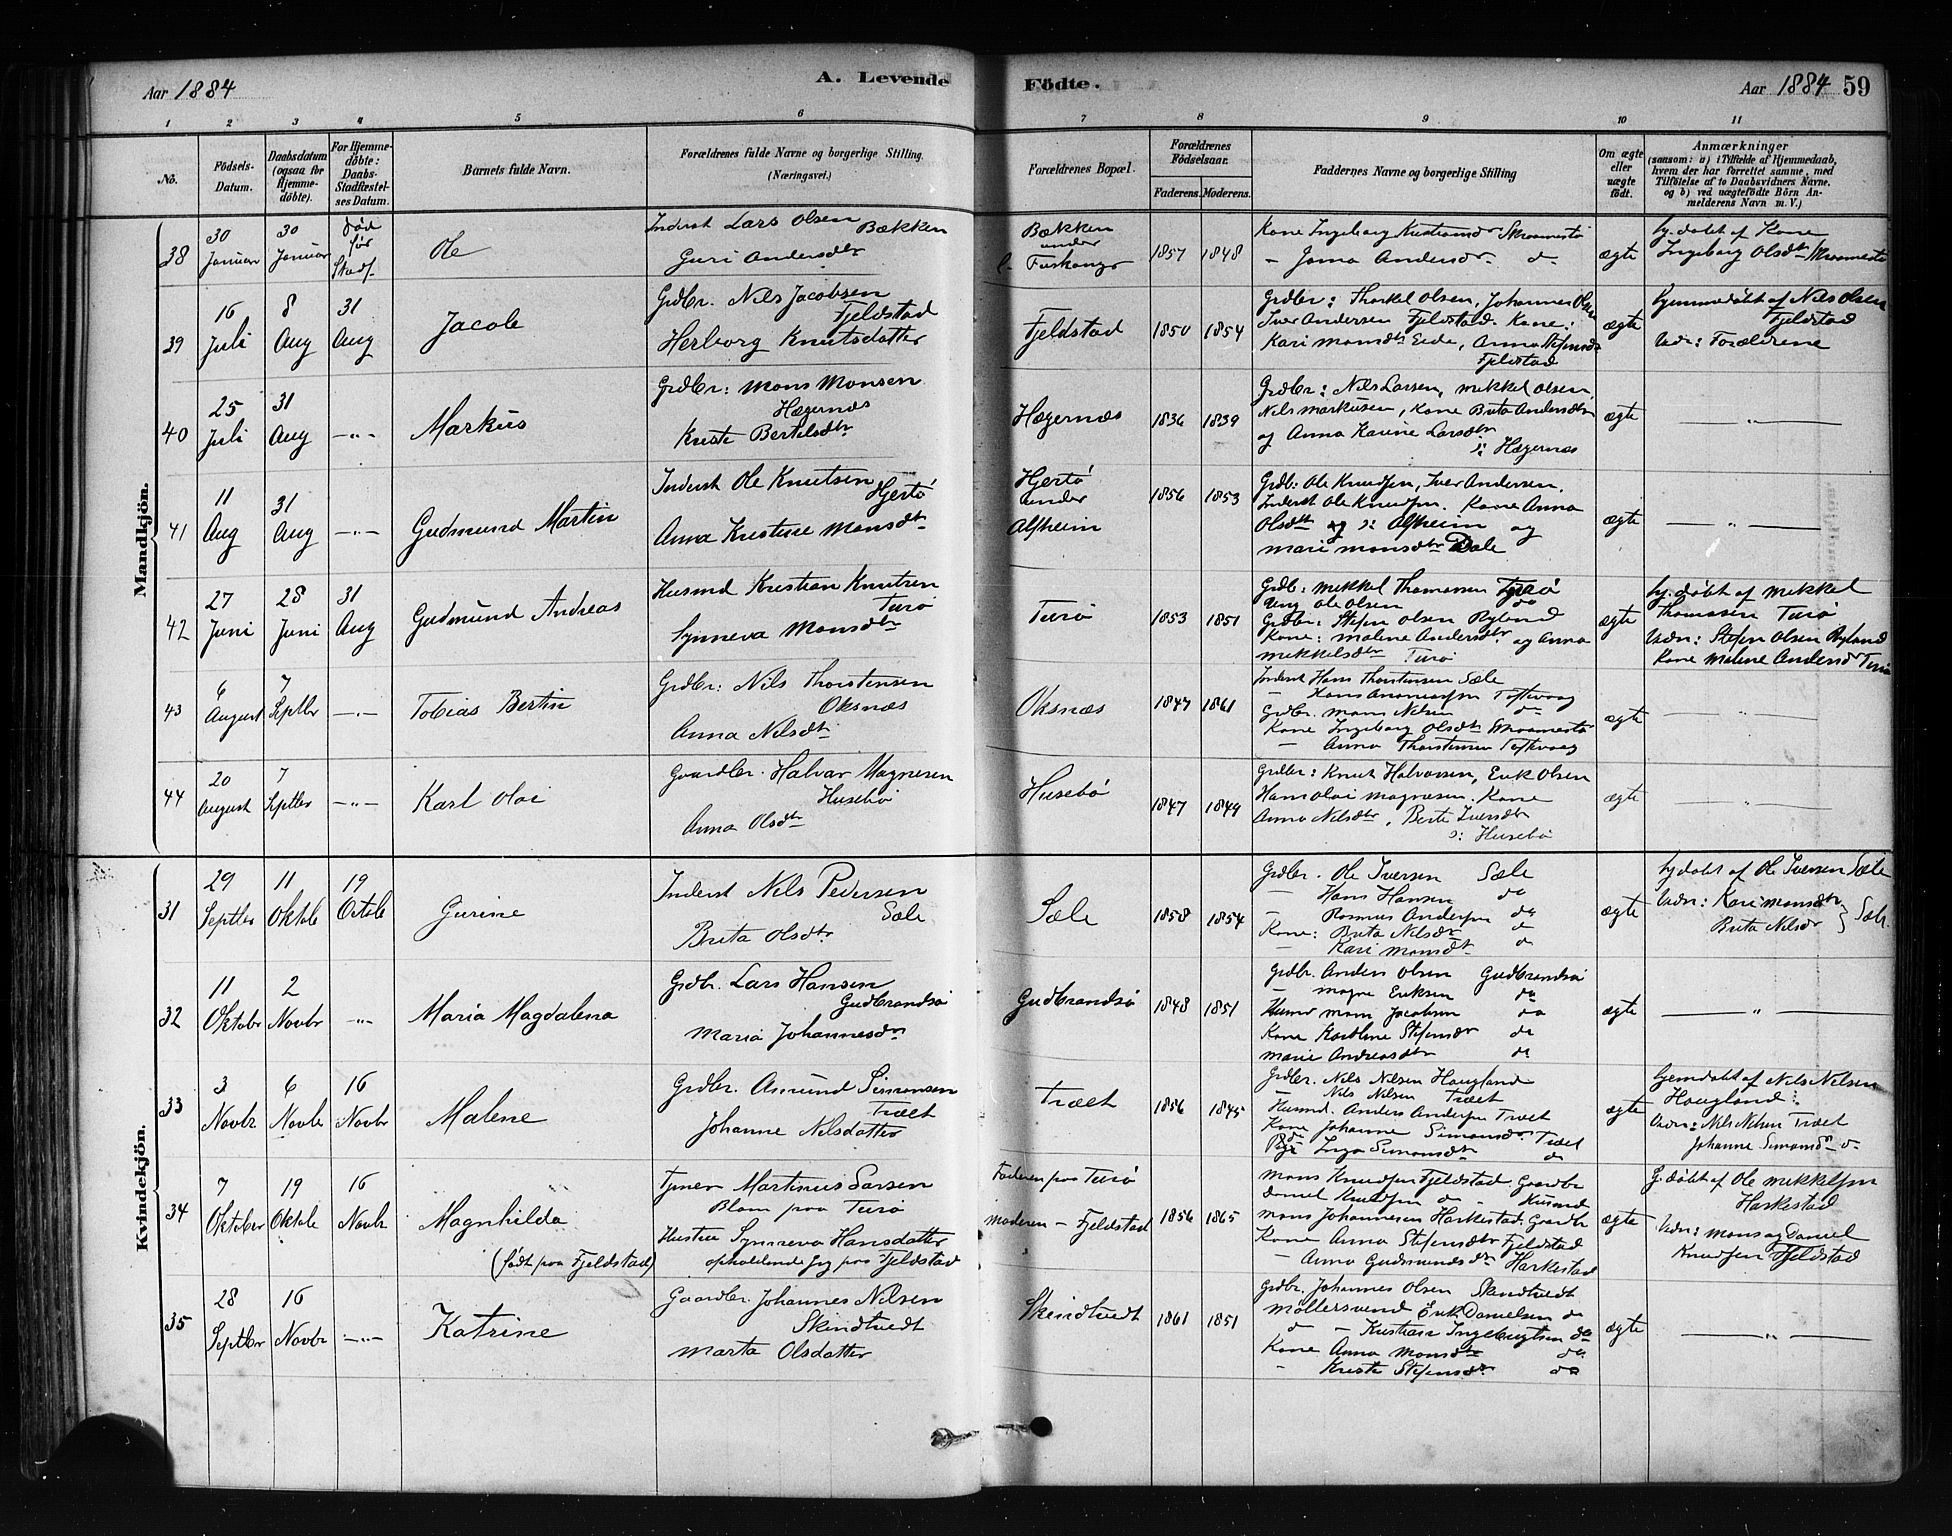 Aar 1884
A. Levende
Födte.
Aar 1884 59
1 2 3 4 5 6 7 8 9 10 11
No.
Födsels-Datum.
Daabsdatum (ogsaa for Hjemme-döbte).
For Hjemme-döbte: Daabs-Stadfæstel-ses Datum.
Barnets fulde Navn.
Forældrenes fulde Navne og borgerlige Stilling.
(Næringsvei.)
Forældrenes Bopæl.
Forældrenes Födselsaar.
Faderens. Moderens.
Faddernes Navne og borgerlige Stilling
Om ægte eller uægte födt.
Anmærkninger
(saasom: a) i Tilfælde af Hjemmedaab,
hvem der har forrettet samme, med
Tilföielse af to Daabsvidners Navne.
og b) ved uægtefödte Börn An-
melderens Navn m. V.)
Mandkjön.
38
30 Januar
30 Januar
död før Stadf.
Ole
Inderst Lars Olsen Bækken
Guri Andersdtr
Bækken
under
1857 1848
Kone Ingeborg
– Andersdr do
ægte
hj. døbt af Kone
Ingeborg Olsdtr
39
16 Juli
8 Aug
31 Aug
Jacob
Grdbr. Nils Jacobsen
Fjeldstad
Herborg Knutsdatter
Fjeldstad
1850 1854
Grdbr: Thorkel Olsen, Johannes Olsen
Iver Andersen Fjeldstad. Kone:
Kari Monsdtr Eide, Anna Stefensdr
Fjeldstad
ægte
hjemmedøbt af Nils Olsen
Fjeldstad
Vidn: Forældrene
40
25 Juli
31 Aug
–"–
Markus
Grdbr: Mons Monsen
Hægernæs
Kriste Bertelsdtr
Hægernæs
1836 1839
Grdbr: Nils Larsen, Mikkel Olsen,
Nils Markusen, Kone Brita Andersdtr
og Anna Karine Larsdtr
s: Hægernæs
ægte
–"–
41
11 Aug
31 Aug
–"–
Gudmund Martin
Inderst Ole Knutsen
Hjertø
Anna Kristine Monsdtr
Hjertø
under
Alfheim
1856 1853
Grdb: Ole Knudsen, Iver Andersen.
Inderst Ole Knudsen. Kone Anna
Olsdtr s: Alfheim og
Mari Monsdtr Dale
ægte
–"–
42
27 Juni
28 Juni
31 Aug
Gudmund Andreas
Husmd Kristian Knutsen
Turø
Synneva Monsdtr
Turø
1853 1851
Grdb: Mikkel Thomassen
Ung Ole Olsen do
Grdbr: Stefen Olsen Ryland
Kone: Malene Andersdtr og Anna
Mikkelsdtr Turø
ægte
hj. døbt af Mikkel
Thomassen Turø
Vidn: Stefen Olsen Ryland
Kone Malene Andersdr Turø
43
6 August
7 Septbr
–"–
Tobias Bertin
Grdbr: Nils Thorstensen
Oksnæs
Anna Nilsdtr
Oksnæs
1847 1861
Inderst Hans Thorstensen Sæle
– Hans Toftevaag
Grdbr. Mons Nilsen do
Kone Ingeborg Olsdtr
– Anna Thorstensen Toftevaag
ægte
–"–
44
20 August
7 Septbr
–"–
Karl Olai
Gaardbr. Halvar Magnesen
Husebø
Anna Olsdtr
Husebø
1847 1849
Grdbr: Knut Halvorsen, Erik Olsen
Hans Olai Magnesen. Kone
Anna Nilsdtr, Berte Iversdtr
s: Husebø
ægte
–"–
Kvindekjön.
31
29 Septbr
11 Oktob
19 Octob
Gurine
Inderst Nils Pedersen
Sæle
Brita Olsdtr
Sæle
1858 1854
Grdbr. Ole Iversen Sæle
– Hans Hansen do
– Rasmus Andersen do
Kone: Brita Nilsdtr do
– Kari Monsdtr do
ægte
hj døbt af Ole Iversen Sæle
Vidn: Kari Monsdtr
Brita Nilsdr } Sæle
32
11 Oktobr
2 Novbr
–"–
Maria Magdalena
Grdbr. Lars Hansen
Gudbrandsø
Maria Johannesdr
Gudbrandsø
1848 1851
Grdbr. Anders Olsen Gudbrandsø
– Magne Eriksen do
Husmd Mons Jacobsen do
Kone Karoline Stefensdr do
Marie Andreasdtr do
ægte
–"–
33
3 Novbr
6 Novbr
16 Novbr
Malene
Grdbr. Asmund Simonsen
Træet
Johanne Nilsdatter
Træet
1856 1845
Grdbr. Nils Nilsen Hougland
Nils Nilsen Træet
Husmd. Anders Andersen Træet
Kone Johanne Simonsdr Træet
Inga Simonsdtr do
ægte
hjemdøbt af Nils Nilsen
Hougland:
Vidn: Nils Nilsen Træet
Johanne Simonsdr do
34
7 Oktober
19 Oktob
16 Novbr
Magnhilda
(født paa Fjeldstad)
Martinus Larsen
Blom paa Turø
Hustru Synneva Hansdatter
opholdende sig paa Fjeldstad
Faderen paa Turø
Moderen – Fjeldstad
1856 1865
Mons Knudsen Fjeldstad. Gaardbr
Daniel Knudsen do – Husmd
Mons Johannesen Harkestad. Gaardbr
Kone Anna Stefensdtr Fjeldstad
– Anna Gudmundsdr Harkestad
ægte
Hj. døbt af Ole Mikkelsen
Harkestad
Vidn: Mons og Daniel
Knudsen Fjeldstad
35
28 Septbr
16 Novbr
–"–
Katrine
Gaardbr. Johannes Nilsen
Skindtvedt
Marta Olsdatter
Skindtvedt
1861 1851
Grdbr. Johannes Olsen Skindtvedt
Møllersvend Erik Danielsen do
do – Kristian Ingebrigtsen do
Kone Anna Monsdtr do
– Kriste Stefensdr do
ægte
–"–